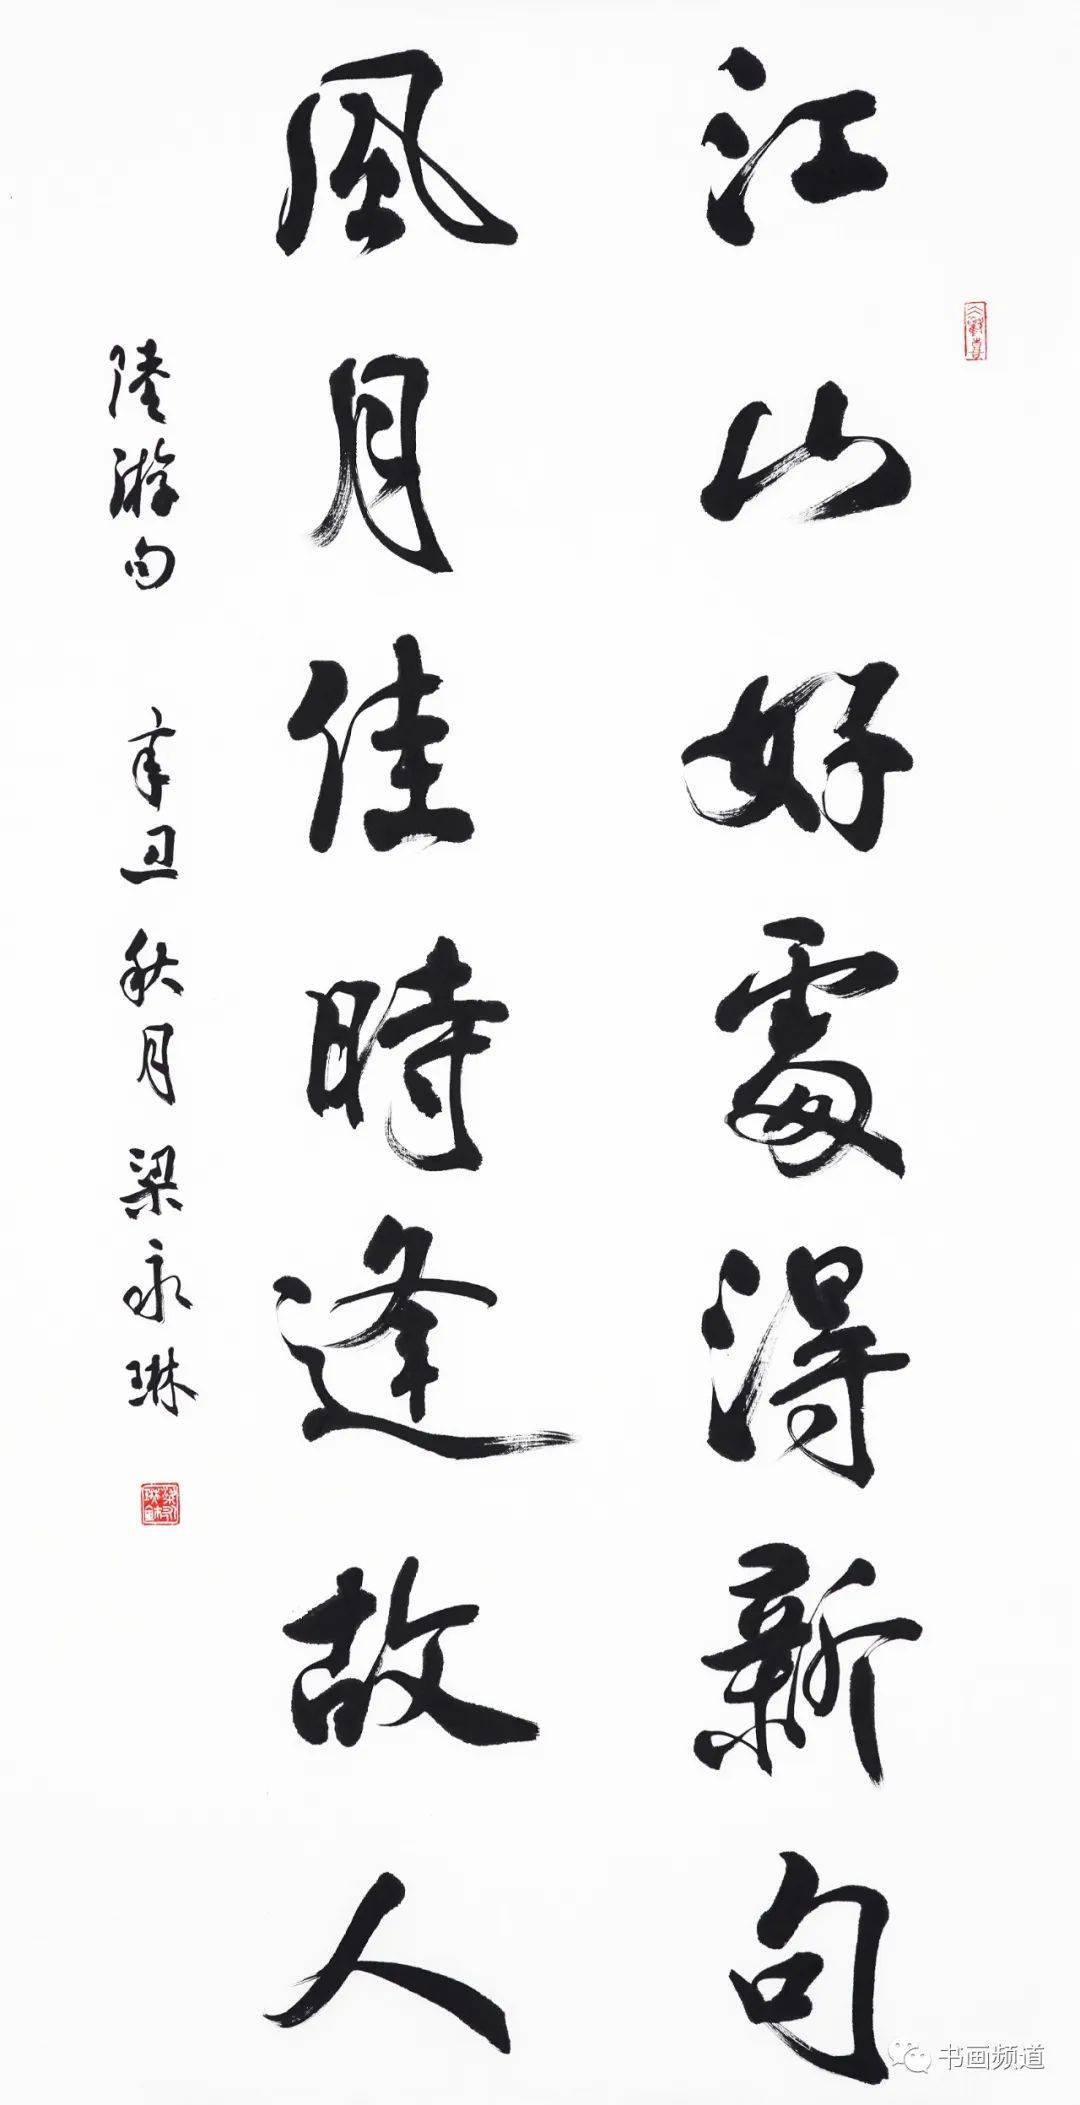 江山好處得新句
風月佳時逢故人
陸游句 辛丑秋月梁永琳
书画频道